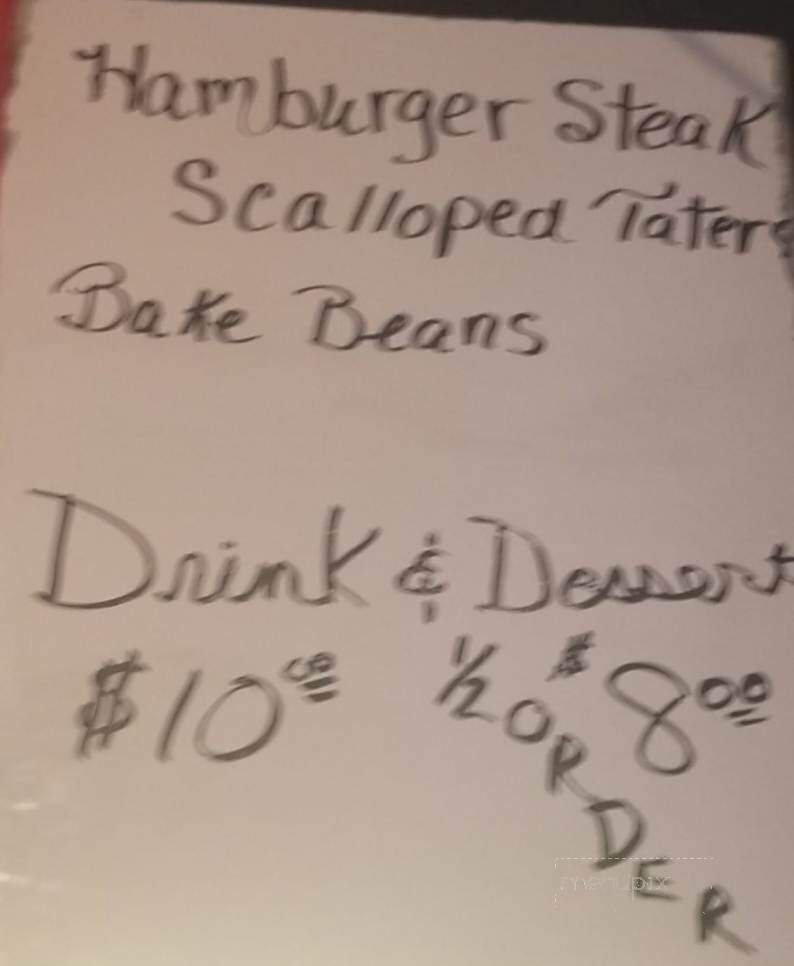 Hamburger Steak
Scalloped Taters
Bake Beans
Drink & Dessert
$10⁰⁰ ½ ORDER $8⁰⁰
menupix